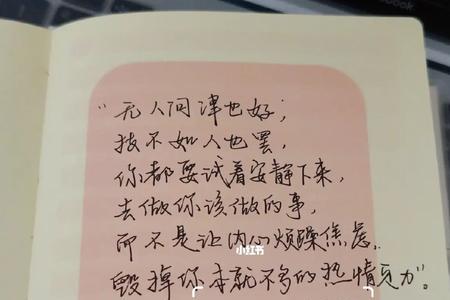 “无人问津也好；
技不如人也罢，
你都要试着安静下来，
去做你该做的事，
而不是让内心烦躁焦虑，
毁掉你本就不多的热情和定力”。
小红书